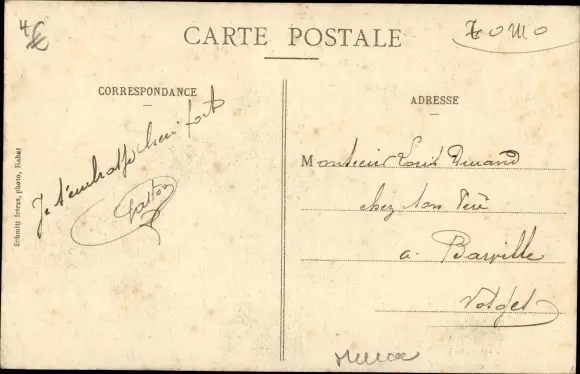 4 €
CARTE POSTALE
CORRESPONDANCE
ADRESSE
Je t'embrasse bien fort
Gaston
Monsieur Louis Durand
chez son Père
a Barville
Vosges
Schmitt frères, photo, Rabat